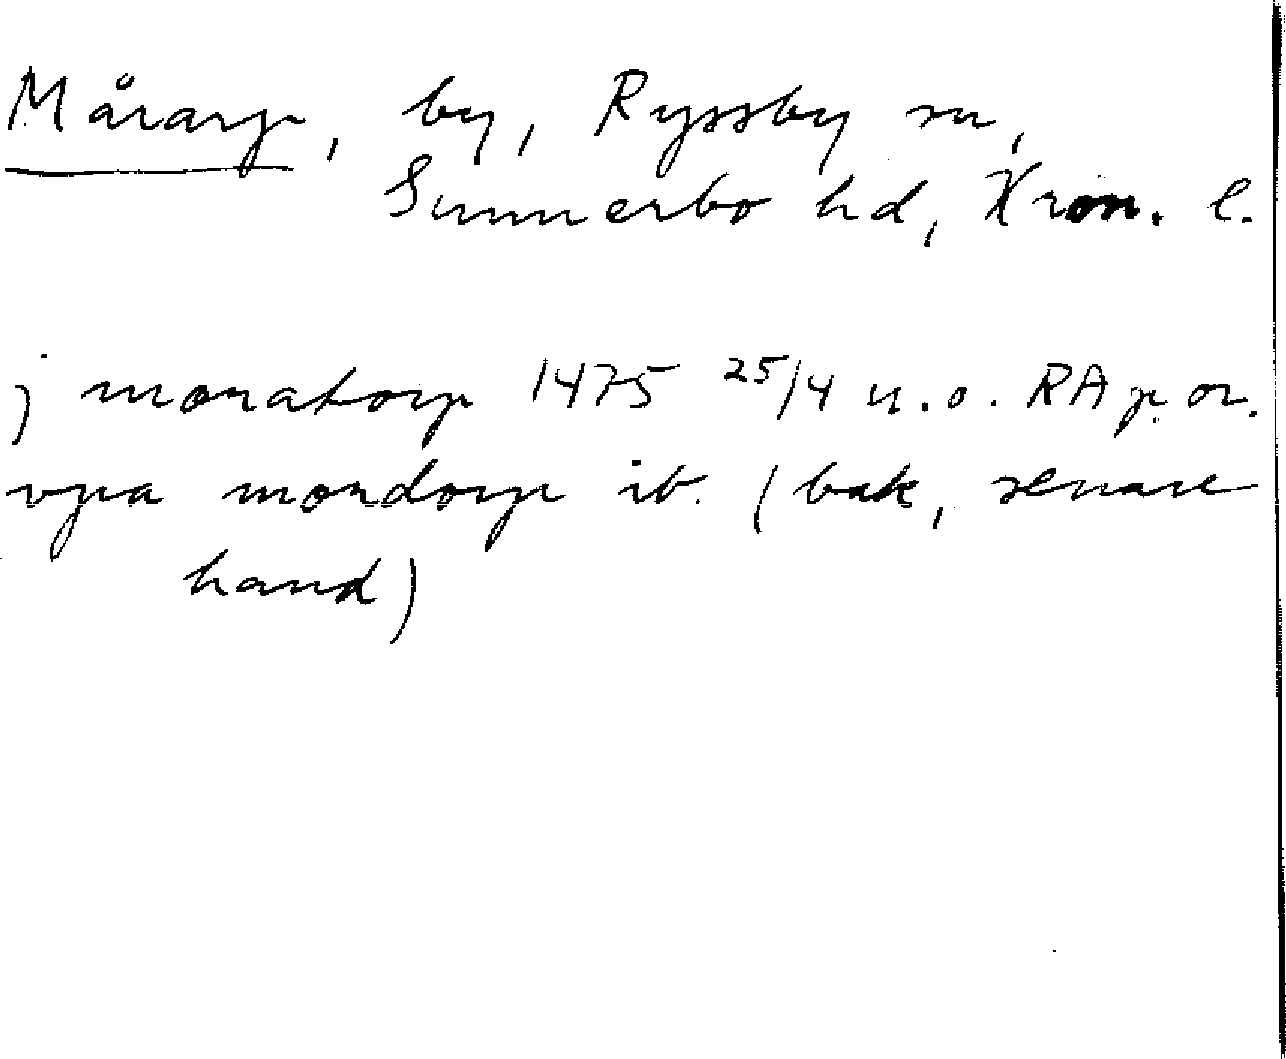 Mårarp, by, Ryssby sn,
Sunnerbo hd, Kron. l.
j moratorp 1475 25/4 u.o. RAp or.
vpa mordorp ib. (bak, senare
hand)